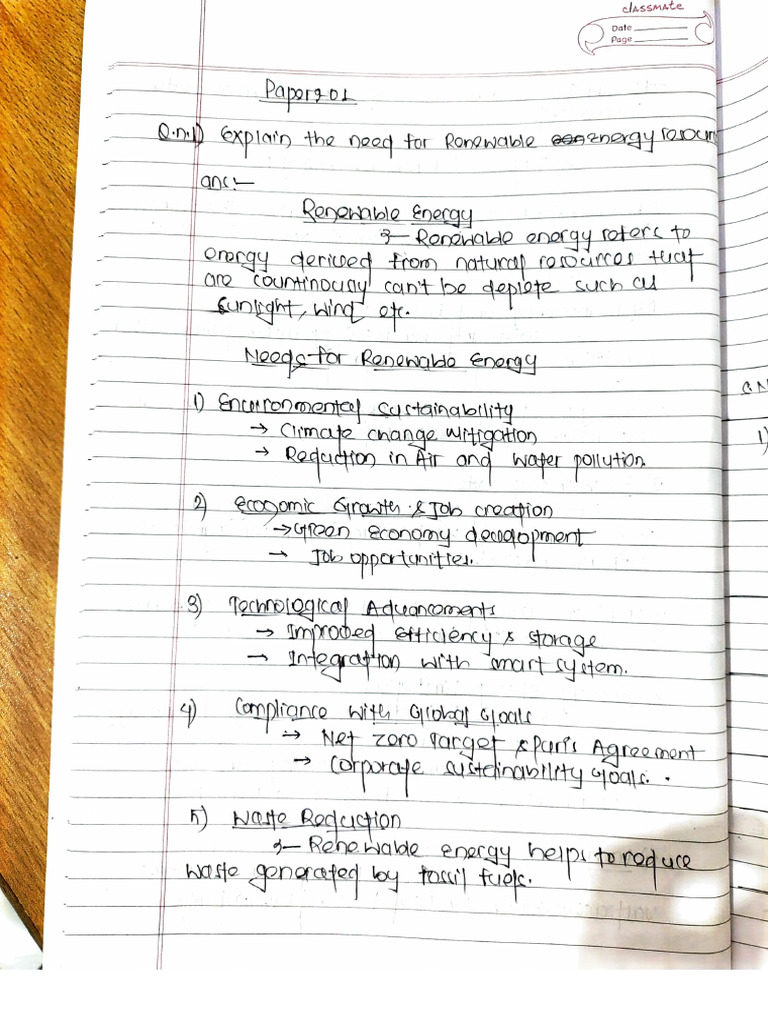 classmate
Date
Page
Paper 201
Q.n.1) Explain the need for Renewable energy resour
ans:-
Renewable Energy
:- Renewable energy refers to
energy derived from natural resources that
are countinously can't be deplete such as
sunlight, wind etc.
Needs for Renewable Energy
1) Environmental sustainability
→ Climate change mitigation
→ Reduction in Air and water pollution
2) Economic Growth & Job creation
→ Green economy development
→ Job opportunities.
3) Technological Advancements
→ Improved efficiency & storage
→ Integration with smart system.
4) Compliance with Global Goals
→ Net zero target & Paris Agreement
→ Corporate sustainability Goals.
5) Waste Reduction
:- Renewable energy helps to reduce
waste generated by fossil fuels.
1)